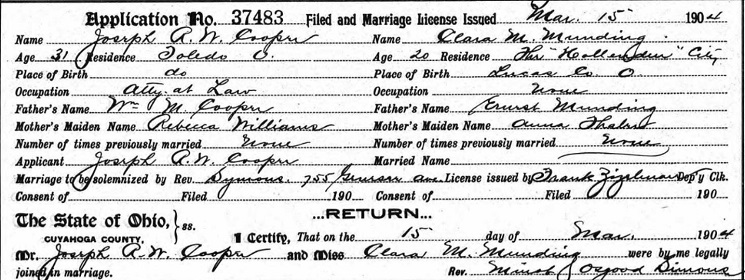 Application No. 37483 Filed and Marriage License Issued Mar. 15 1904
Name Joseph R. W. Cooper Name Clara M. Munding
Age 31 Residence Toledo O. Age 20 Residence The "Hollenden" City
Place of Birth do Place of Birth Lucas Co. O
Occupation Atty. at Law Occupation None
Father's Name Wm M. Cooper Father's Name Ernest Munding
Mother's Maiden Name Rebecca Williams Mother's Maiden Name Anna
Number of times previously married None Number of times previously married None
Applicant Joseph R. W. Cooper Married Name
Marriage to be solemnized by Rev. 755 ave. License issued by Frank Dep'y Clk.
Consent of Filed 190 Consent of Filed 190
...RETURN...
The State of Ohio, } ss.
CUYAHOGA COUNTY,
I Certify, That on the 15 day of Mar. 1904
Mr. Joseph R. W. Cooper and Miss Clara M. Munding were by me legally
joined in marriage. Rev. Minot Osgood Simons